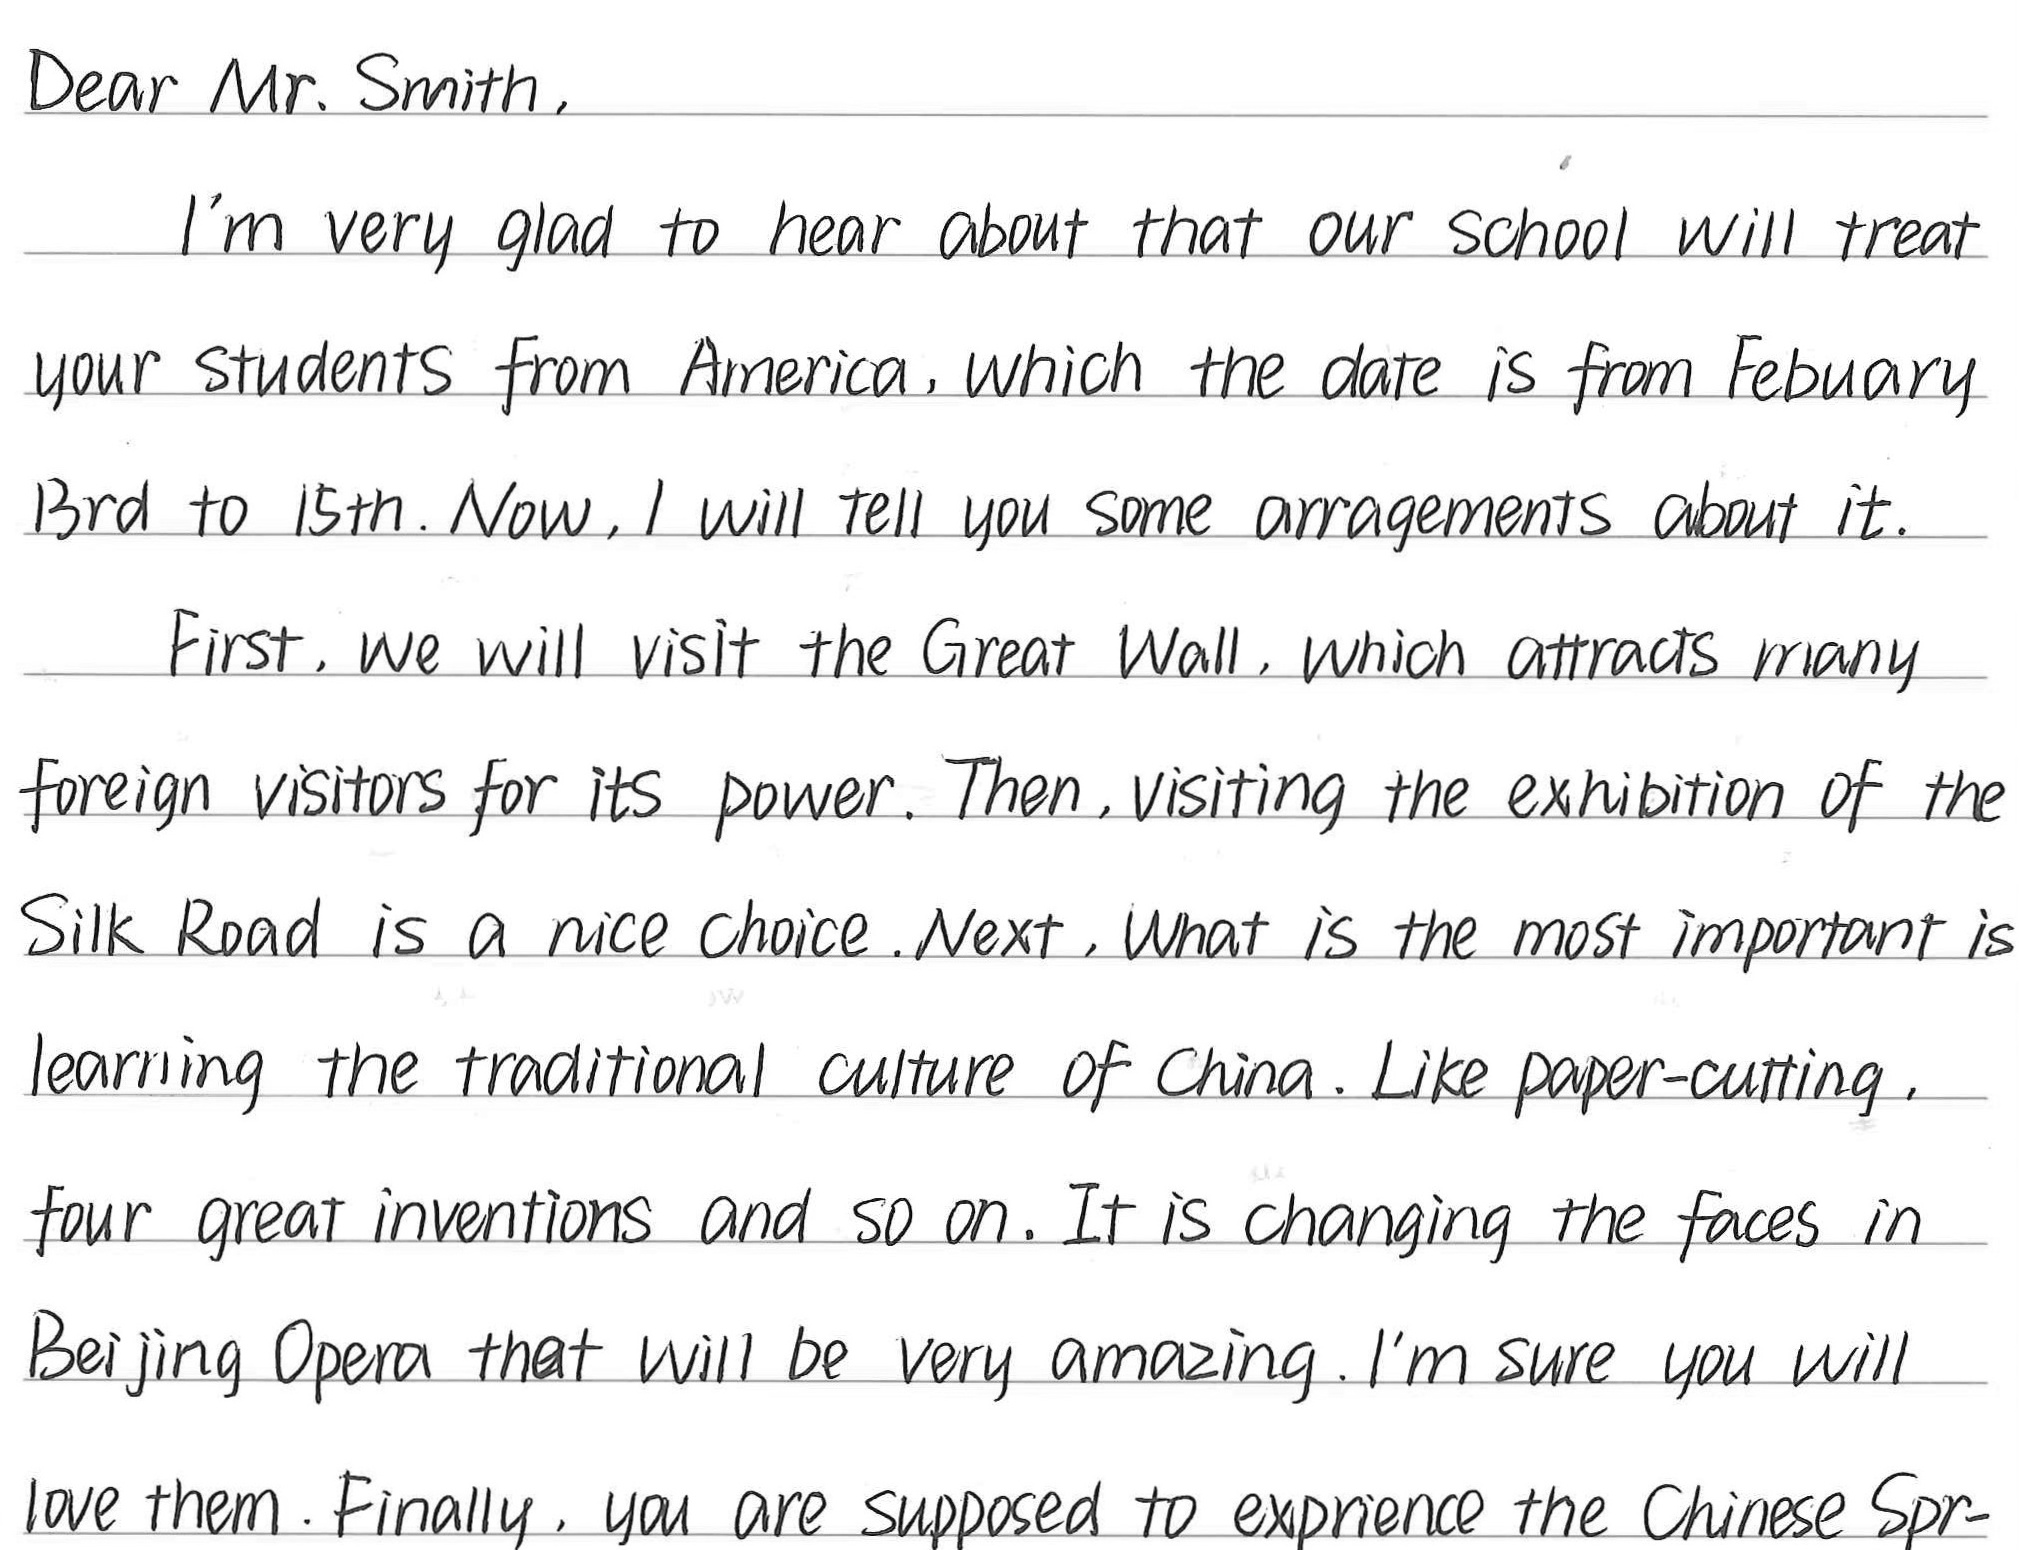 Dear Mr. Smith,
I'm very glad to hear about that our school will treat
your students from America, which the date is from Febuary
13rd to 15th. Now, I will tell you some arragements about it.
First, we will visit the Great Wall, which attracts many
foreign visitors for its power. Then, visiting the exhibition of the
Silk Road is a nice choice. Next, What is the most important is
learning the traditional culture of China. Like paper-cutting,
four great inventions and so on. It is changing the faces in
Beijing Opera that will be very amazing. I'm sure you will
love them. Finally, you are supposed to exprience the Chinese Spr-